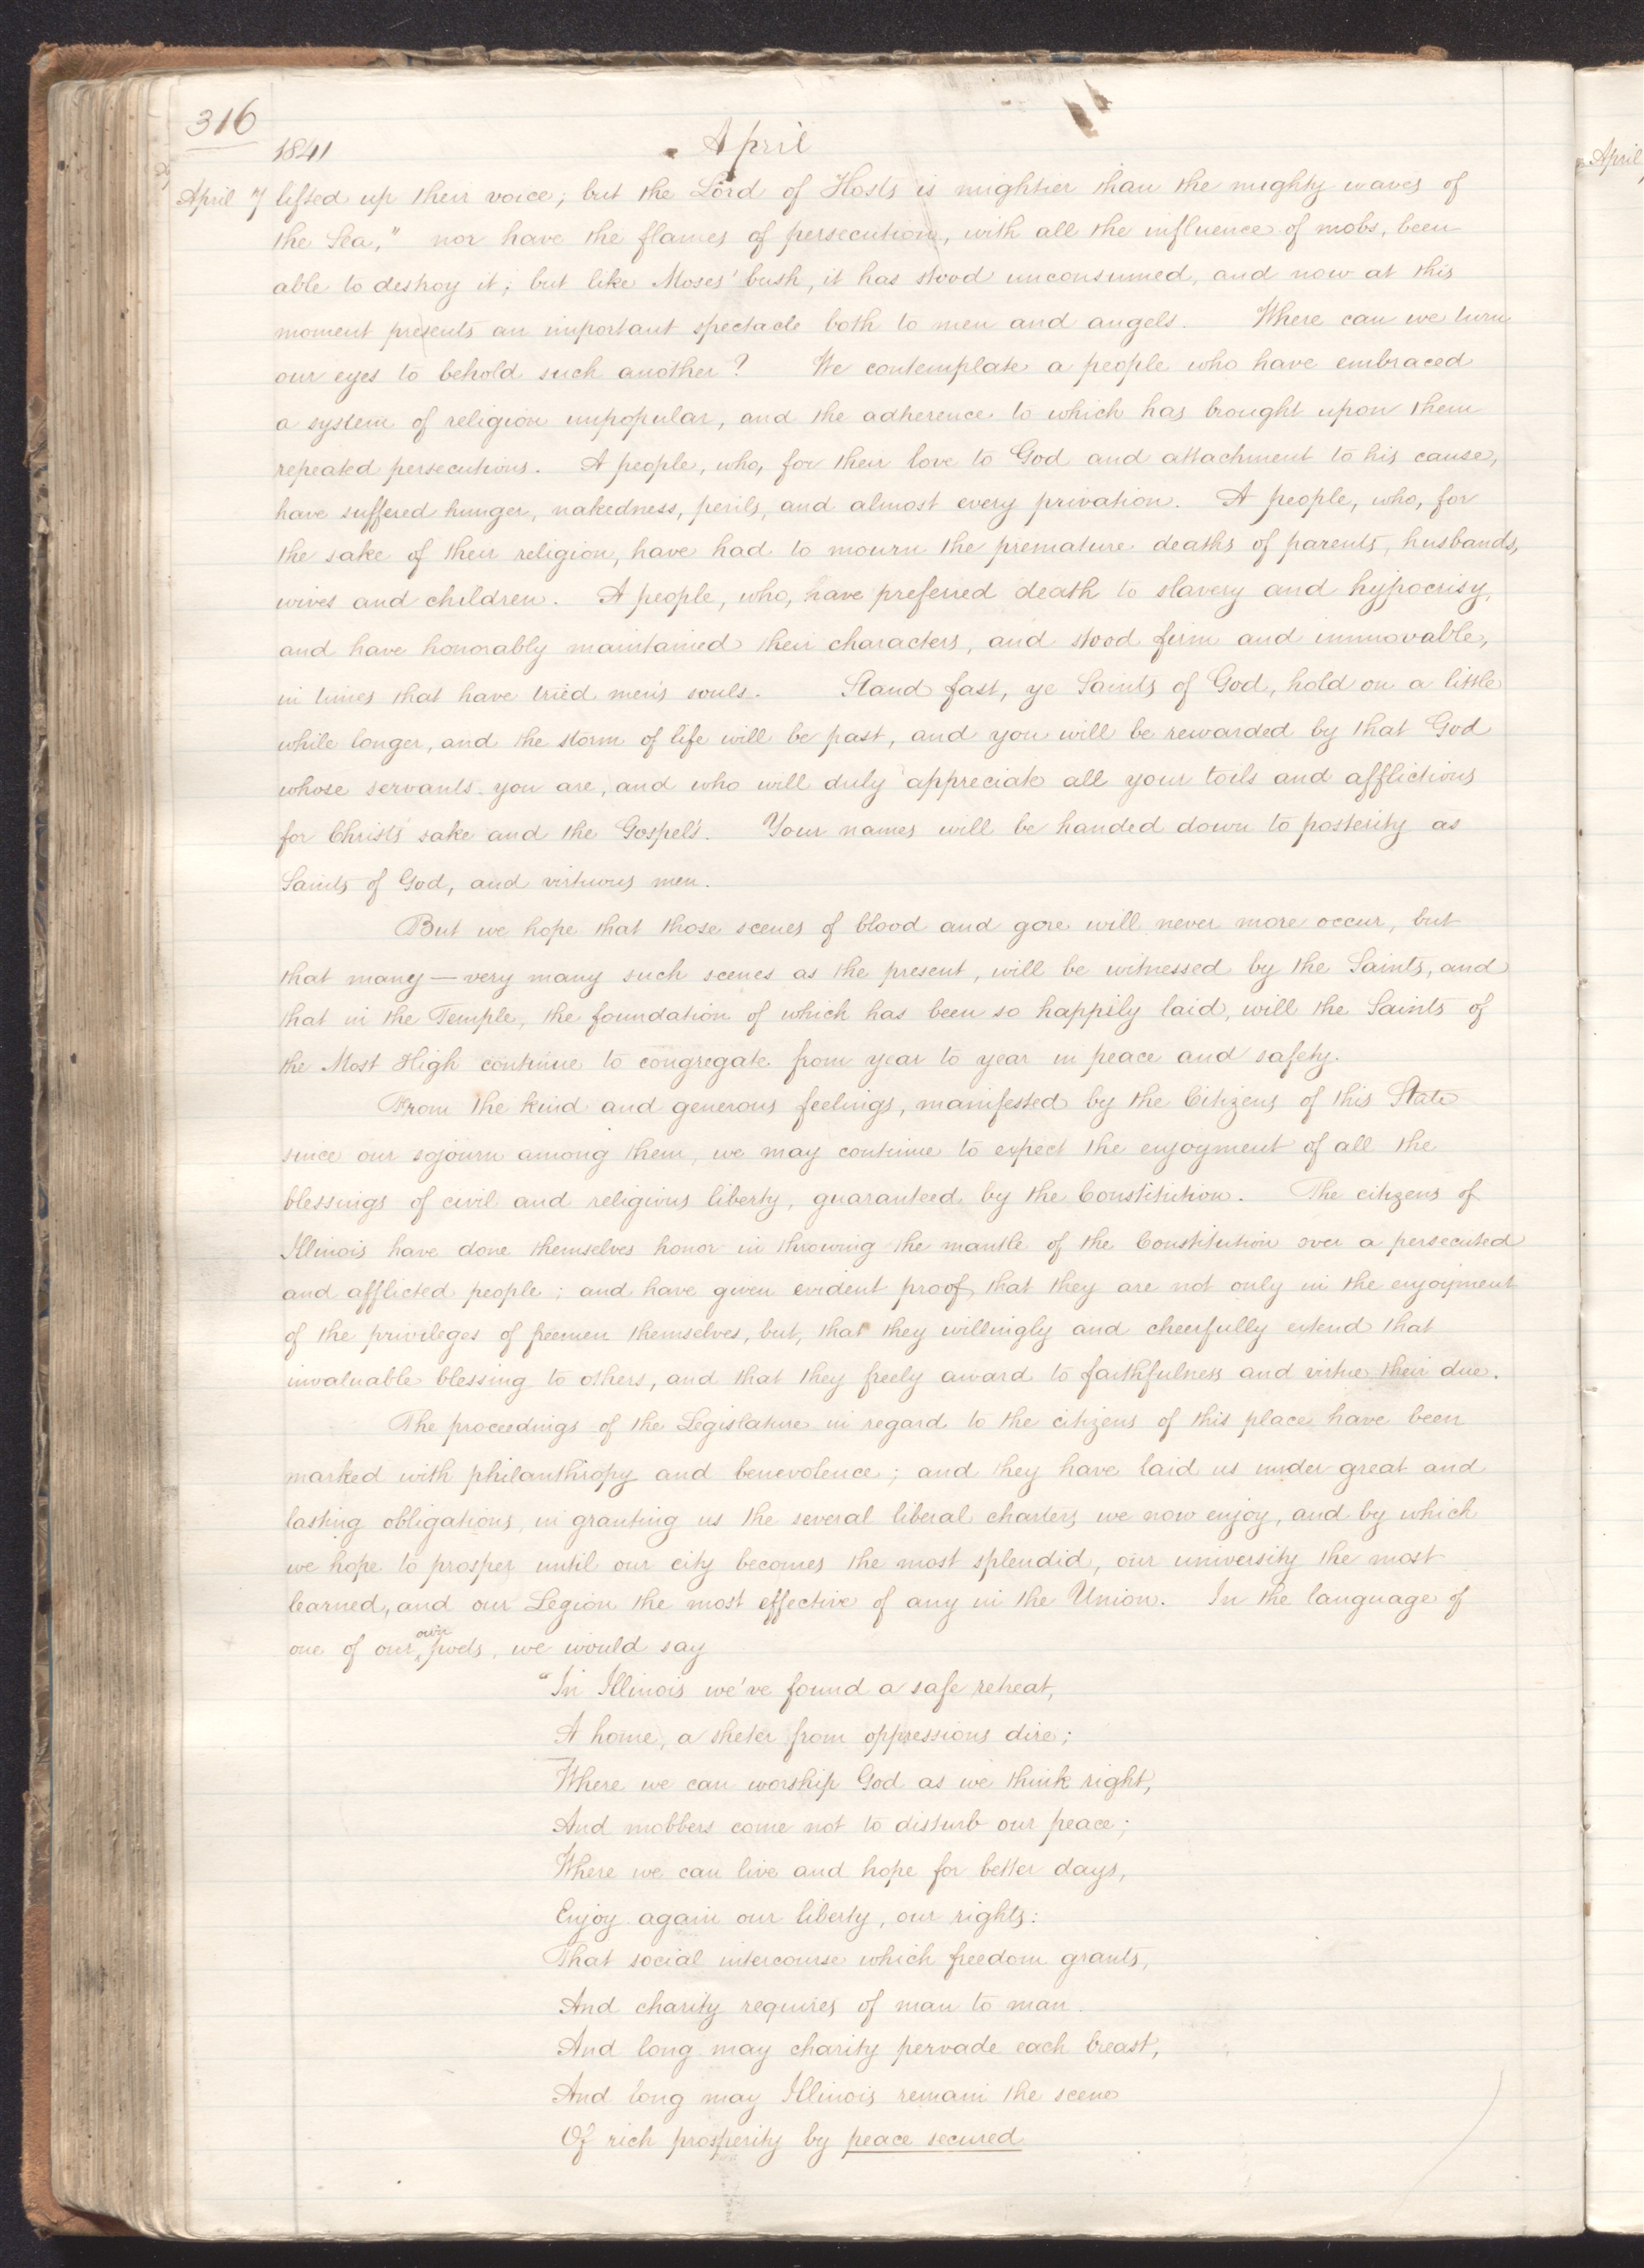 316
1841
April
April 7 lifted up their voice; but the Lord of Hosts is mightier than the mighty waves of
the Sea," nor have the flames of persecution, with all the influence of mobs, been
able to destroy it; but like Moses' bush, it has stood unconsumed, and now at this
moment presents an important spectacle both to men and angels. Where can we turn
our eyes to behold such another? We contemplate a people who have embraced
a system of religion unpopular, and the adherence to which has brought upon them
repeated persecutions. A people, who, for their love to God and attachment to his cause,
have suffered hunger, nakedness, perils, and almost every privation. A people, who, for
the sake of their religion, have had to mourn the premature deaths of parents, husbands,
wives and children. A people, who, have preferred death to slavery and hypocrisy,
and have honorably maintained their characters, and stood firm and immovable,
in times that have tried men's souls. Stand fast, ye Saints of God, hold on a little
while longer, and the storm of life will be past, and you will be rewarded by that God
whose servants you are, and who will duly appreciate all your toils and afflictions
for Christs' sake and the Gospel's. Your names will be handed down to posterity as
Saints of God, and virtuous men.
But we hope that those scenes of blood and gore will never more occur, but
that many — very many such scenes as the present, will be witnessed by the Saints, and
that in the Temple, the foundation of which has been so happily laid, will the Saints of
the Most High continue to congregate from year to year in peace and safety.
From the kind and generous feelings, manifested by the Citizens of this State
since our sojourn among them, we may continue to expect the enjoyment of all the
blessings of civil and religious liberty, guaranteed by the Constitution. The citizens of
Illinois have done themselves honor in throwing the mantle of the Constitution over a persecuted
and afflicted people; and have given evident proof, that they are not only in the enjoyment
of the privileges of freemen themselves, but, that they willingly and cheerfully extend that
invaluable blessing to others, and that they freely award to faithfulness and virtue their due.
The proceedings of the Legislature in regard to the citizens of this place have been
marked with philanthropy and benevolence; and they have laid us under great and
lasting obligations, in granting us the several liberal charters we now enjoy, and by which
we hope to prosper until our city becomes the most splendid, our university the most
learned, and our Legion the most effective of any in the Union. In the language of
one of our own poets, we would say
"In Illinois we've found a safe retreat,
A home, a sheter from oppressions dire;
Where we can worship God as we think right,
And mobbers come not to disturb our peace;
Where we can live and hope for better days,
Enjoy again our liberty, our rights:
That social intercourse which freedom grants,
And charity requires of man to man.
And long may charity pervade each breast,
And long may Illinois remain the scene
Of rich prosperity by peace secured
April